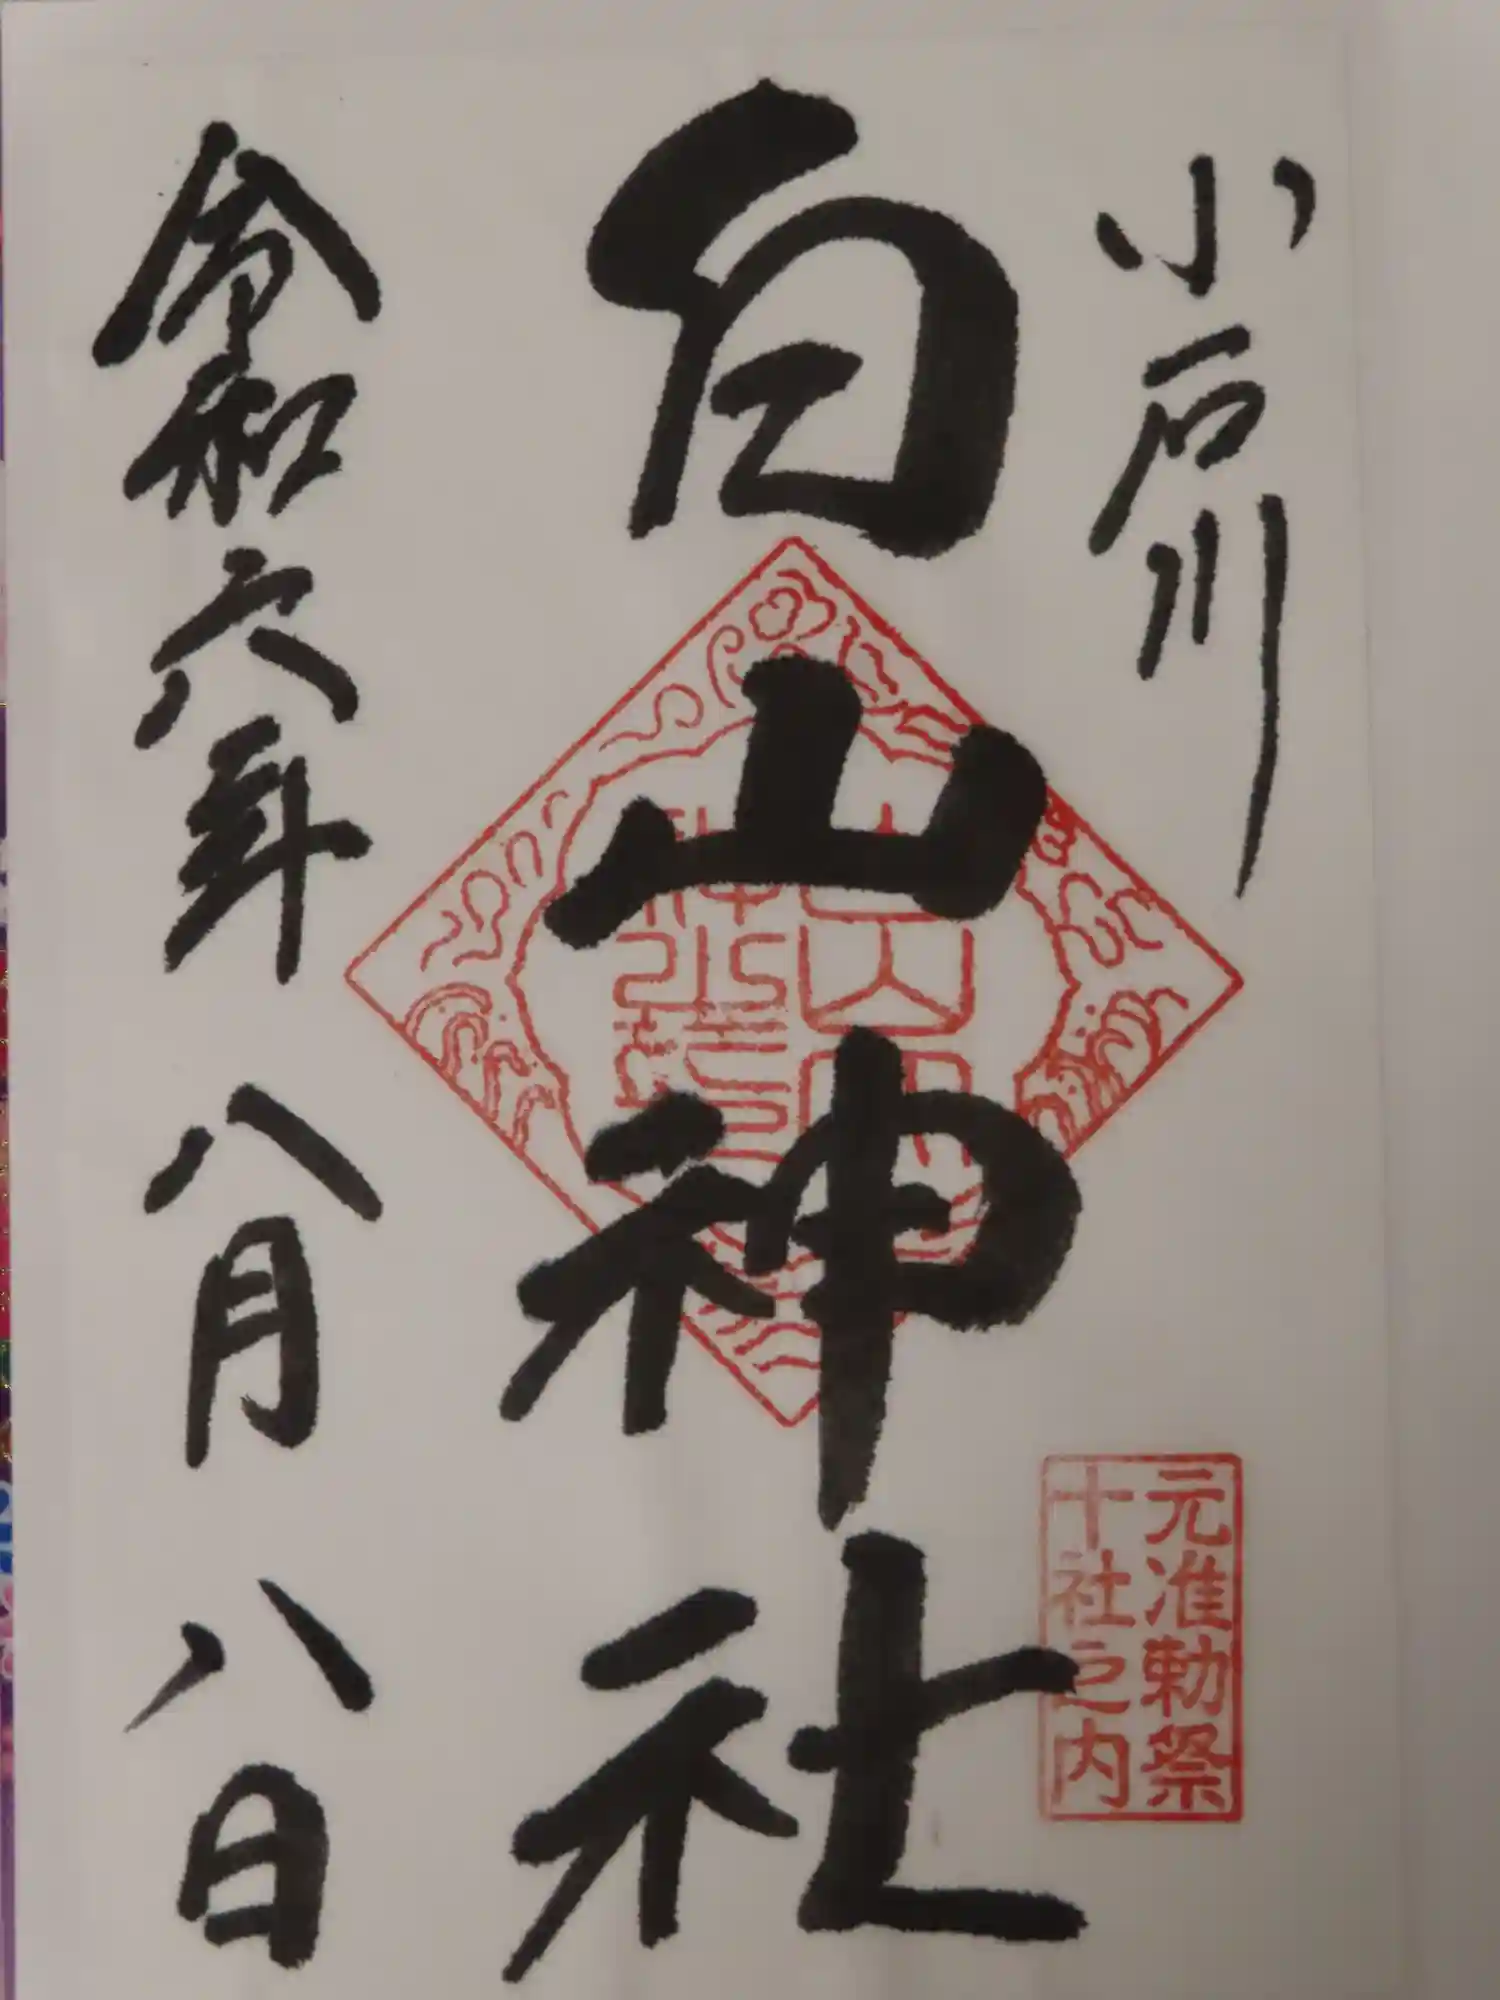 小石川
白山神社
元准勅祭
十社之内
令和六年八月八日